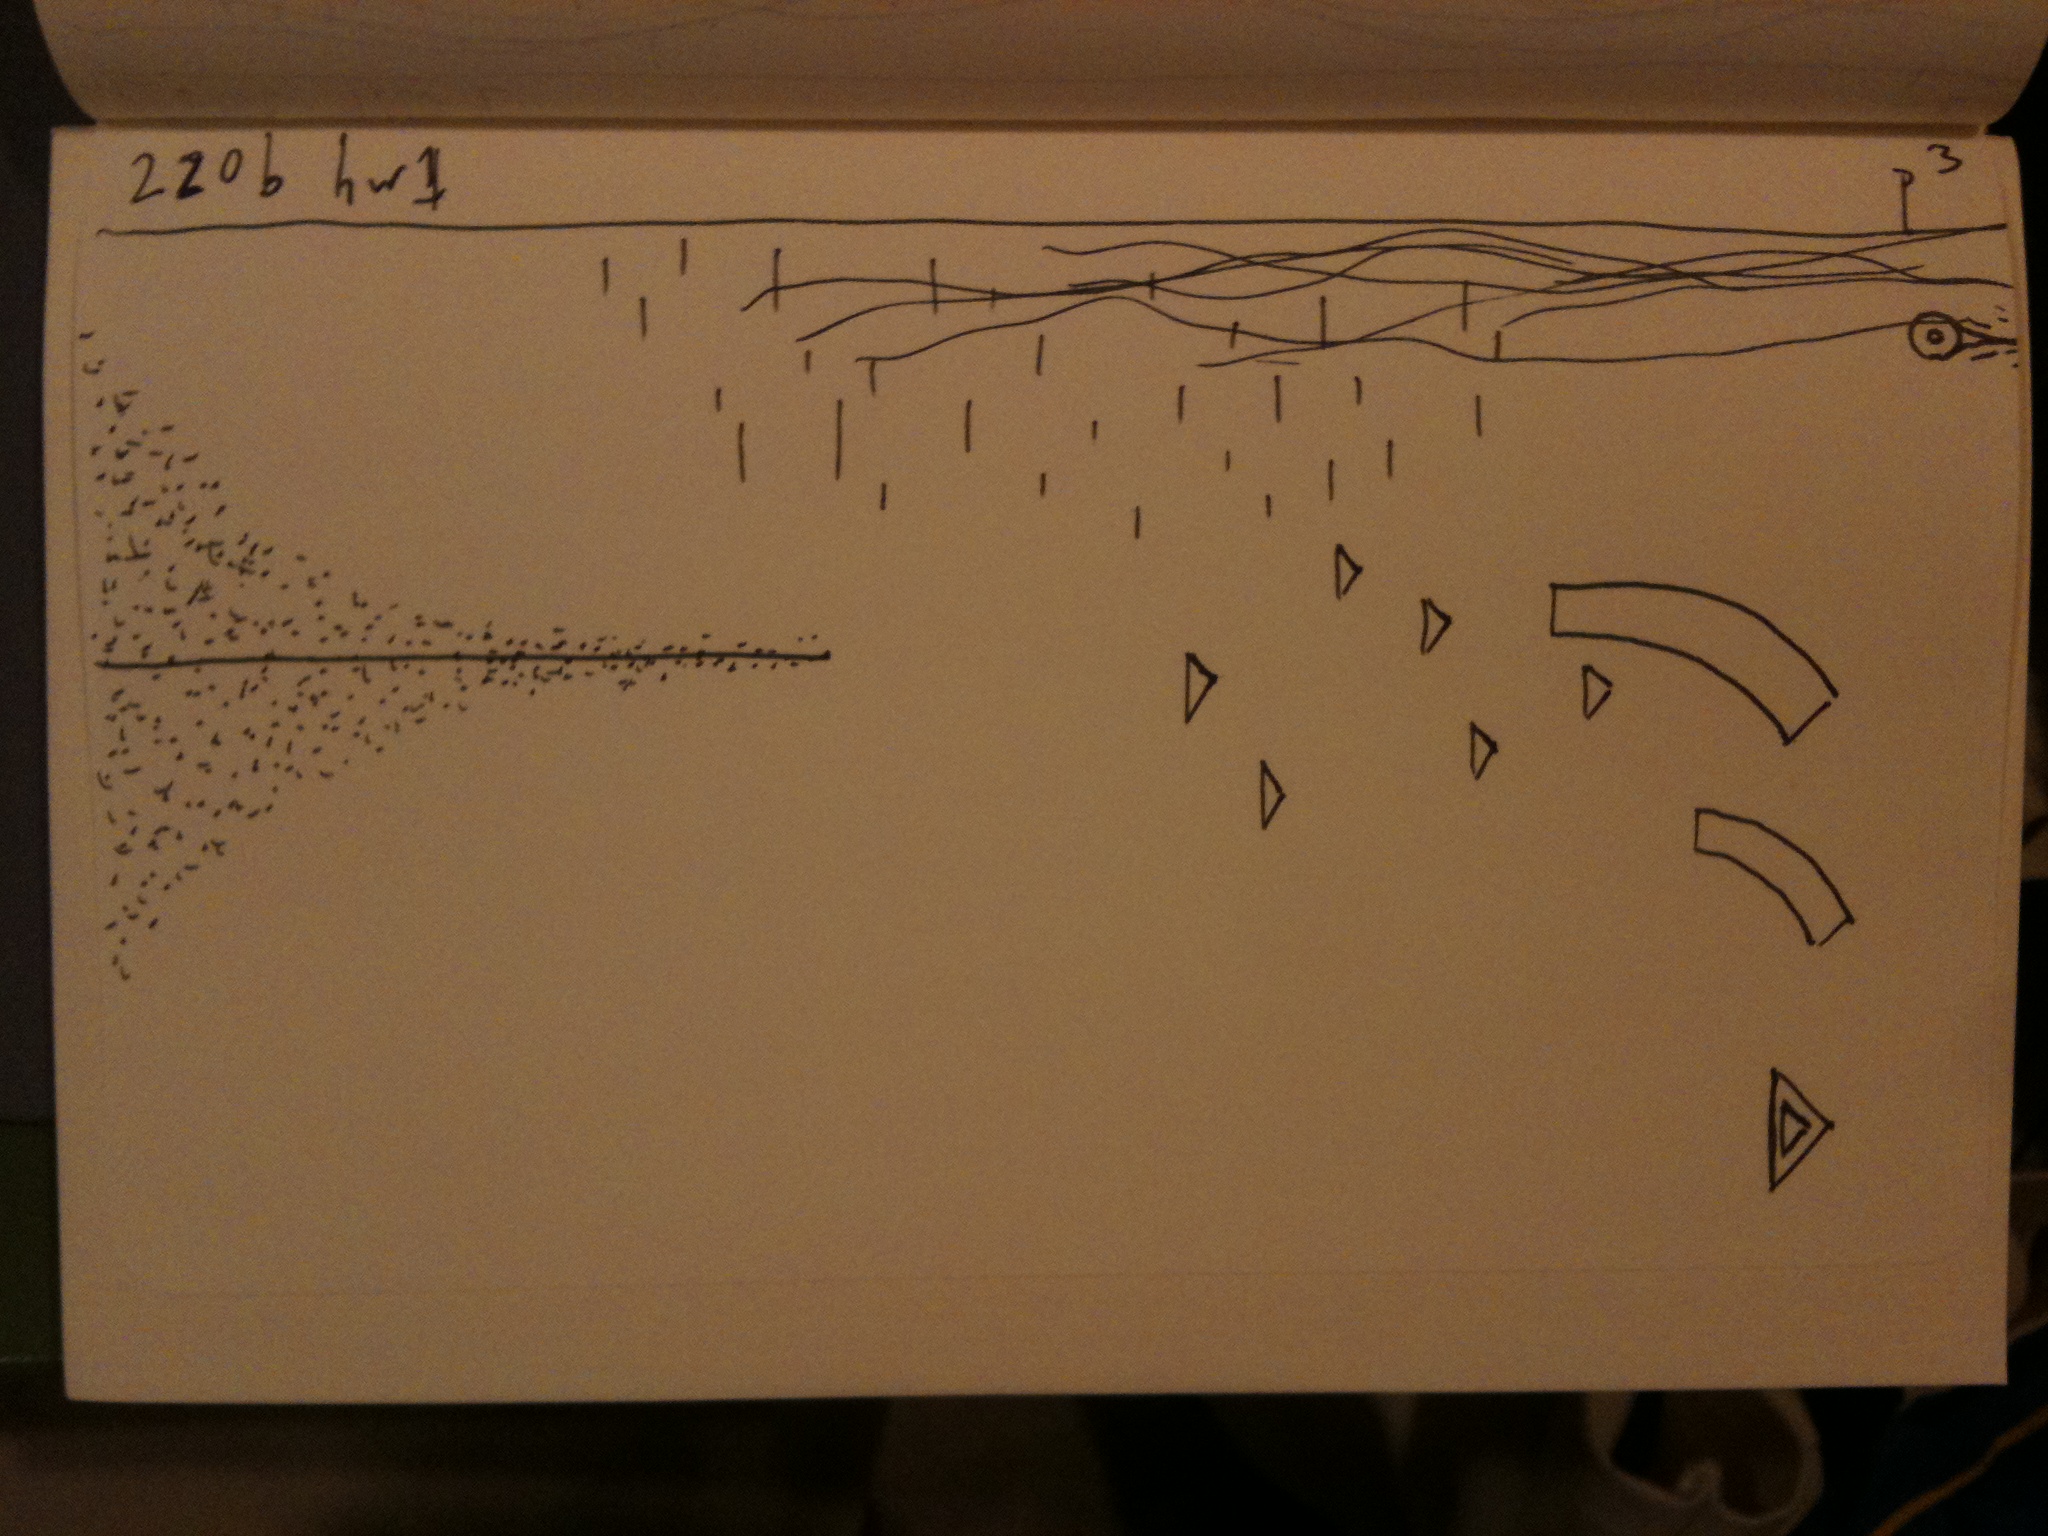 220b hw1
p3